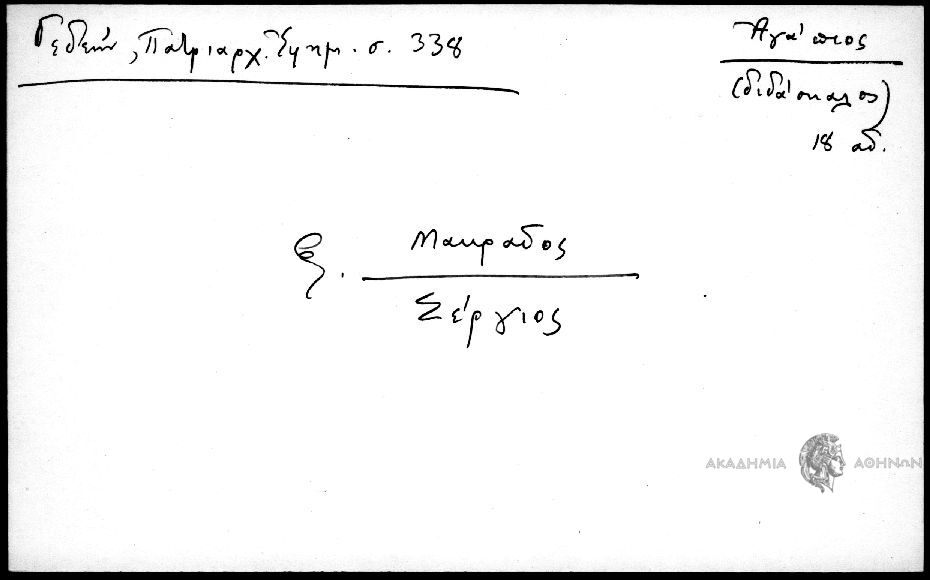 Γεδεών, Πατριαρχ. Ἐφημ. σ. 338
Ἀγάπιος
(διδάσκαλος)
18 αἰ.
Μακραῖος
Σέργιος
ΑΚΑΔΗΜΙΑ ΑΘΗΝΩΝ